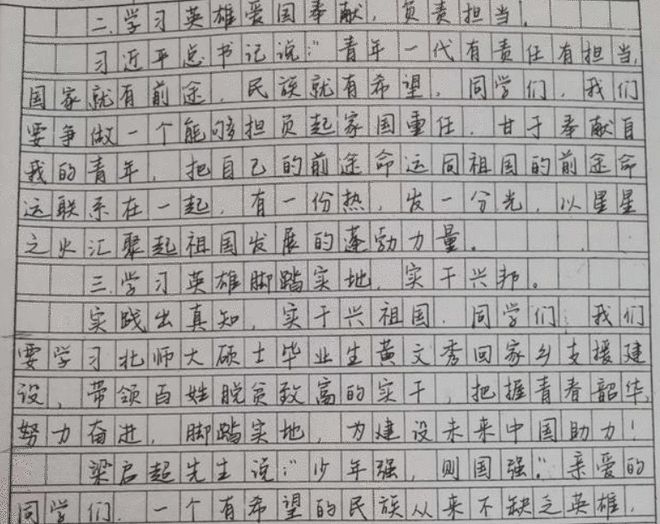 二.学习英雄爱国奉献，负责担当。
习近平总书记说："青年一代有责任有担当,
国家就有前途，民族就有希望。同学们，我们
要争做一个能够担负起家国重任，甘于奉献自
我的青年，把自己的前途命运同祖国的前途命
运联系在一起，有一份热，发一分光，以星星
之火汇聚起祖国发展的蓬勃力量。
三.学习英雄脚踏实地，实干兴邦。
实践出真知，实干兴祖国。同学们，我们
要学习北师大硕士毕业生黄文秀回家乡支援建
设，带领百姓脱贫致富的实干，把握青春韶华,
努力奋进，脚踏实地，为建设未来中国助力！
梁启超先生说："少年强，则国强。"亲爱的
同学们，一个有希望的民族从来不缺乏英雄，